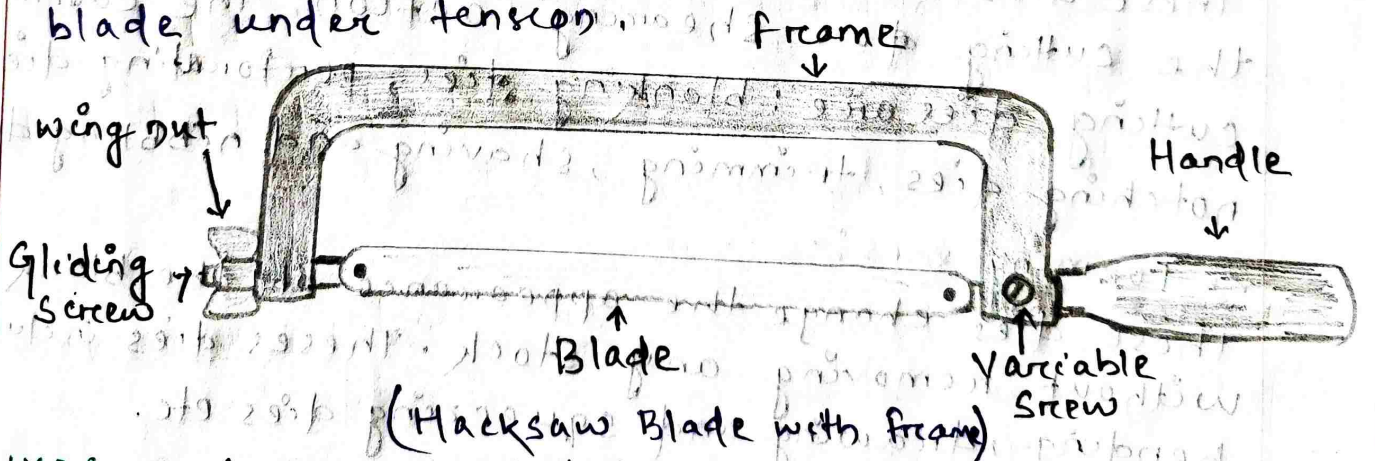 blade under tension.
frame
wing nut
Handle
Gliding
Screw
Blade
Variable
Screw
(Hacksaw Blade with frame)